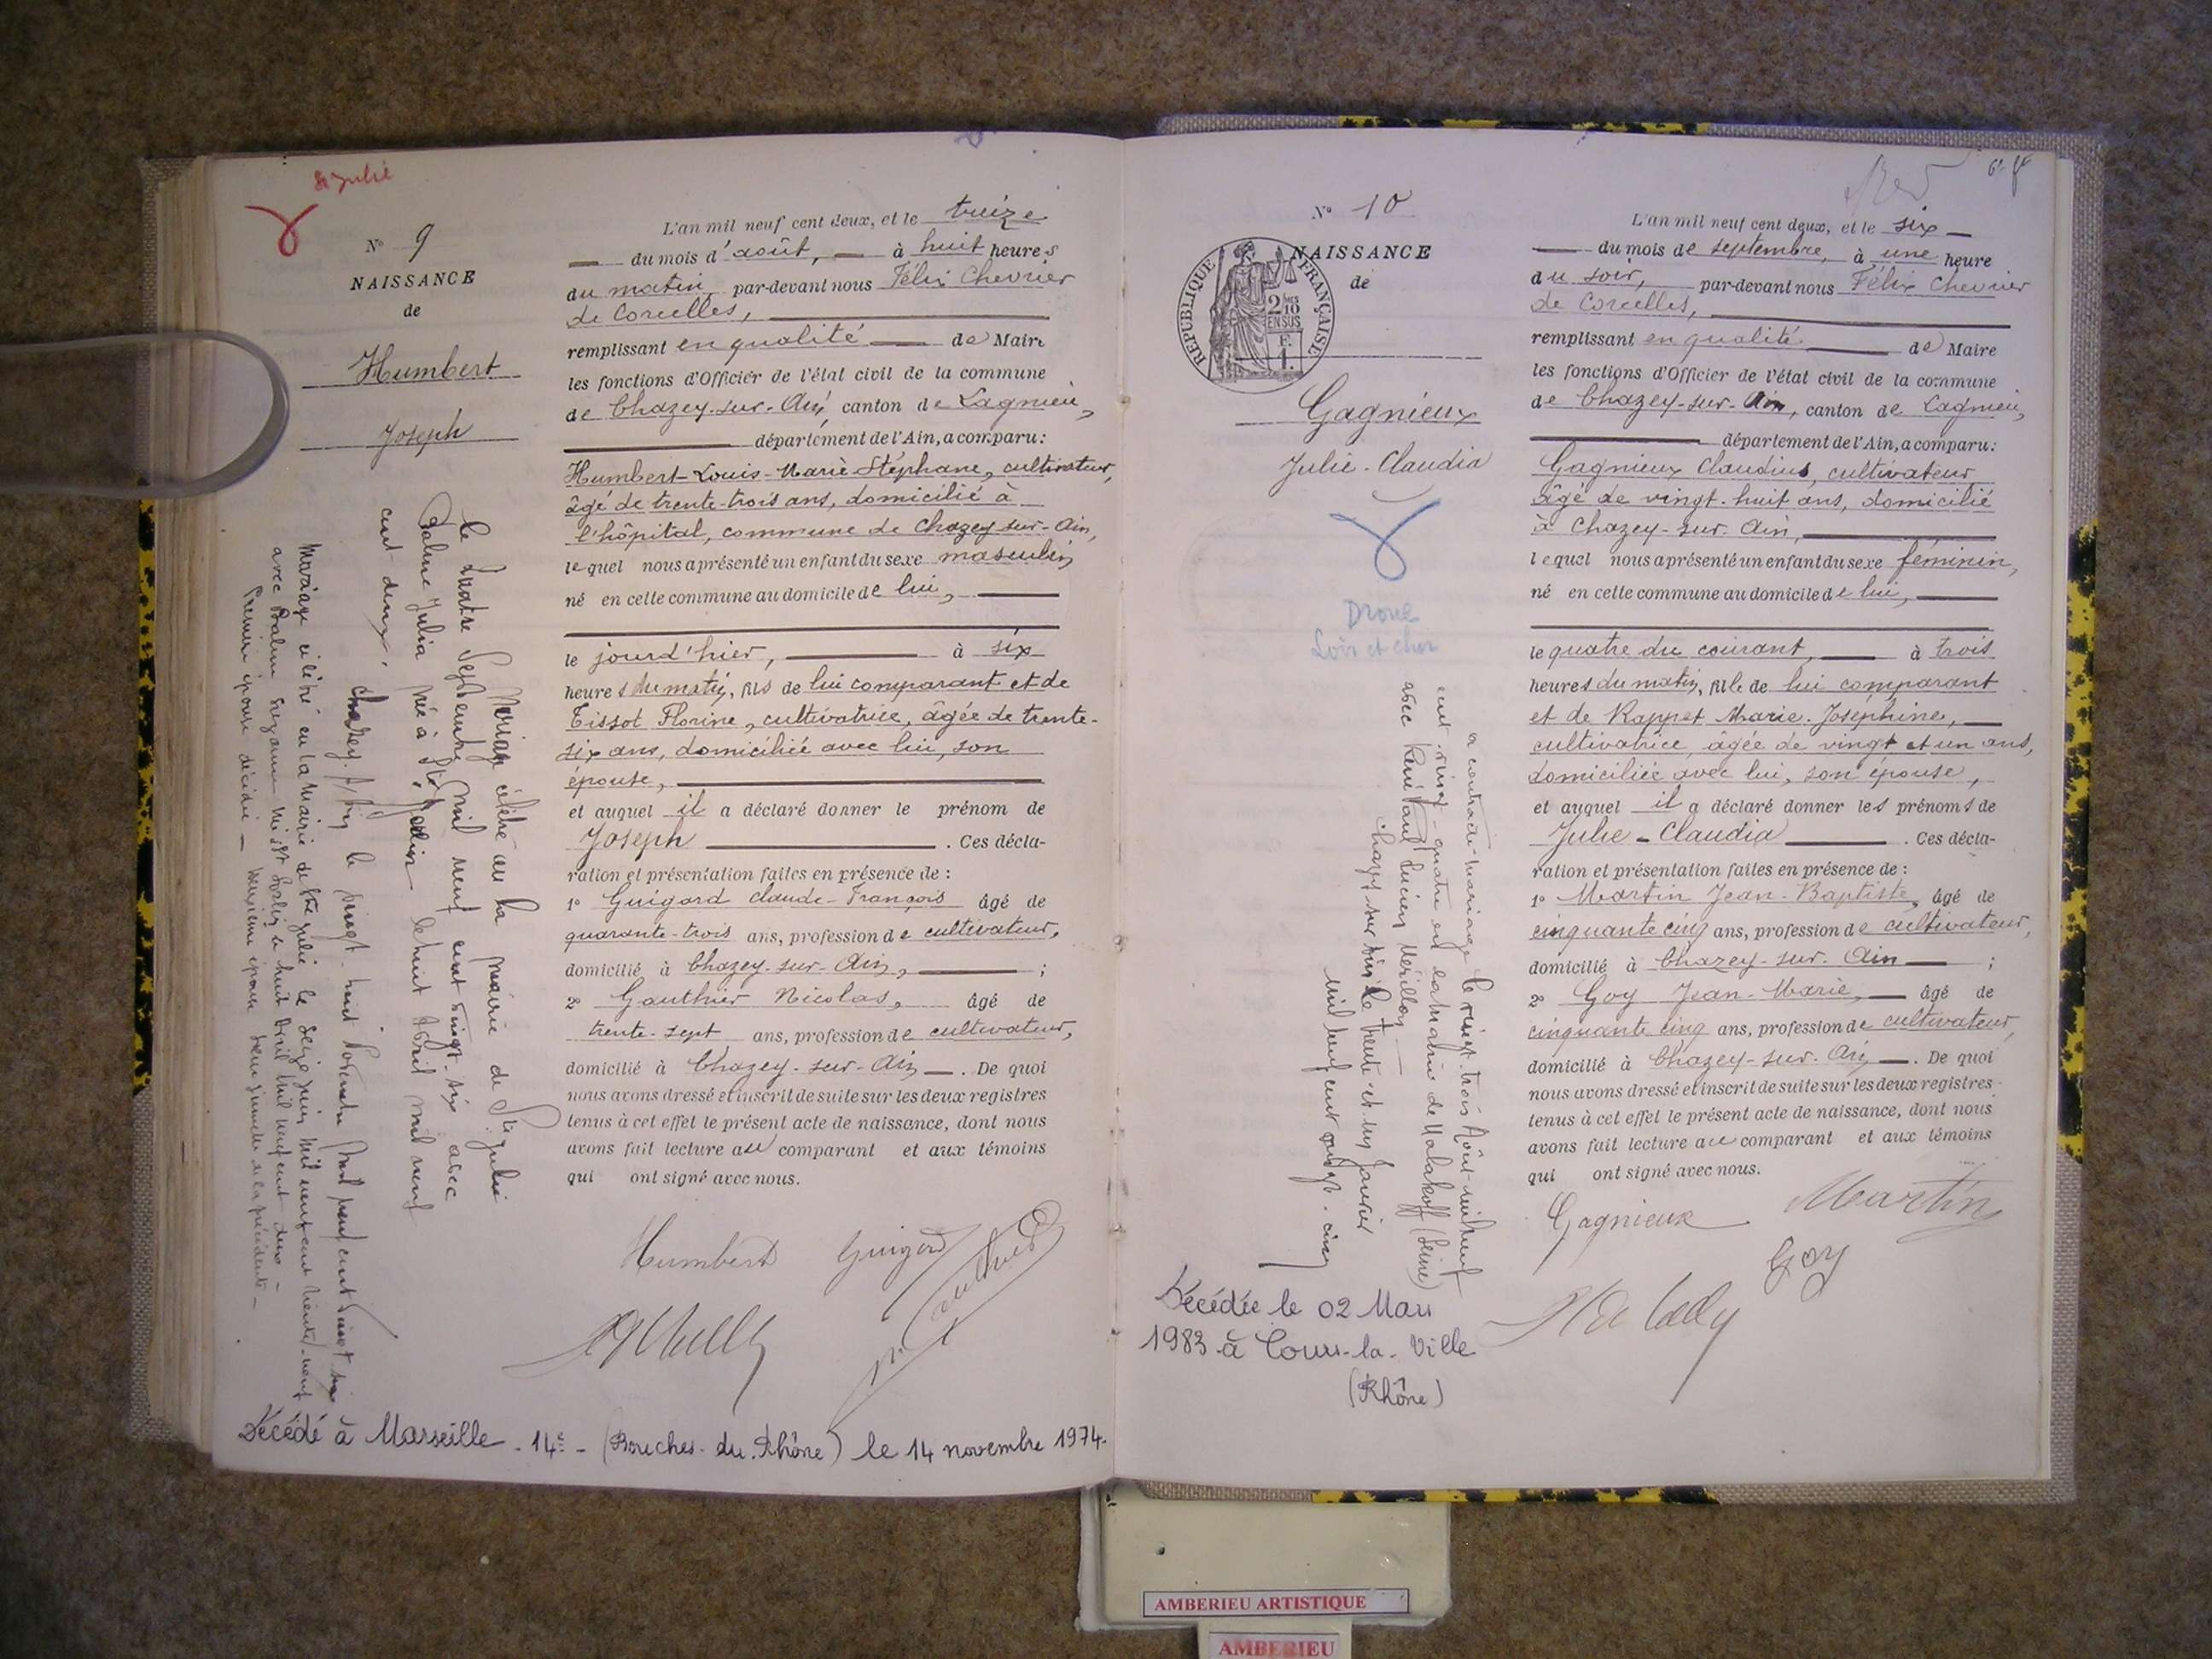 Ste Julie
N° 9
NAISSANCE
de
Humbert
Joseph
L'an mil neuf cent deux, et le treize
du mois d'août, à huit heures
du matin par-devant nous Félix Chevrier
de Corcelles,
remplissant en qualité de Maire
les fonctions d'Officier de l'état civil de la commune
de Chazey-sur-Ain, canton de Lagnieu,
département de l'Ain, a comparu :
Humbert Louis-Marie-Stéphane, cultivateur,
âgé de trente-trois ans, domicilié à
l'hôpital, commune de Chazey-sur-Ain,
lequel nous a présenté un enfant du sexe masculin
né en cette commune au domicile de lui,
le jourd'hier, à six
heures du matin, fils de lui comparant et de
Tissot Florine, cultivatrice, âgée de trente-
six ans, domiciliée avec lui, son
épouse,
et auquel il a déclaré donner le prénom de
Joseph. Ces décla-
ration et présentation faites en présence de :
1° Guigard Claude-François âgé de
quarante-trois ans, profession de cultivateur,
domicilié à Chazey-sur-Ain, ;
2° Gauthier Nicolas, âgé de
trente-sept ans, profession de cultivateur,
domicilié à Chazey-sur-Ain. De quoi
nous avons dressé et inscrit de suite sur les deux registres
tenus à cet effet le présent acte de naissance, dont nous
avons fait lecture au comparant et aux témoins
qui ont signé avec nous.
Humbert Guigard
Gauthier
Mariage célébré en la mairie de Ste Julie
le quatre Septembre mil neuf cent vingt-six avec
Julia née à le huit Avril mil neuf
cent deux.
Chazey s/Ain le vingt-huit Novembre mil neuf cent vingt six
Mariage célébré en la Mairie de Ste Julie le Seize Juin mil neuf cent trente-neuf
avec Suzanne née à St Sorlin le huit Avril mil neuf cent deux -
Première épouse décédée - Deuxième épouse sœur jumelle de la précédente -
Décédé à Marseille - 14e - (Bouches-du-Rhône) le 14 novembre 1974.
N° 10
NAISSANCE
de
RÉPUBLIQUE FRANÇAISE
2/10
EN SUS
Gagnieux
Julie-Claudia
Droué
Loir et cher
L'an mil neuf cent deux, et le six
du mois de septembre, à une heure
du soir, par-devant nous Félix Chevrier
de Corcelles,
remplissant en qualité de Maire
les fonctions d'Officier de l'état civil de la commune
de Chazey-sur-Ain, canton de Lagnieu,
département de l'Ain, a comparu :
Gagnieux Claudius, cultivateur
âgé de vingt-huit ans, domicilié
à Chazey-sur-Ain,
lequel nous a présenté un enfant du sexe féminin,
né en cette commune au domicile de lui,
le quatre du courant, à trois
heures du matin, fille de lui comparant
et de Rappet Marie-Joséphine,
cultivatrice, âgée de vingt et un ans,
domiciliée avec lui, son épouse,
et auquel il a déclaré donner les prénoms de
Julie-Claudia. Ces décla-
ration et présentation faites en présence de :
1° Martin Jean-Baptiste, âgé de
cinquante cinq ans, profession de cultivateur,
domicilié à Chazey-sur-Ain ;
2° Goy Jean-Marie, âgé de
cinquante cinq ans, profession de cultivateur,
domicilié à Chazey-sur-Ain. De quoi
nous avons dressé et inscrit de suite sur les deux registres
tenus à cet effet le présent acte de naissance, dont nous
avons fait lecture au comparant et aux témoins
qui ont signé avec nous.
Gagnieux Martin
Goy
a contracté mariage le vingt-trois Août mil neuf
cent vingt-quatre en la Mairie de Malakoff (Seine)
avec René Paul Lucien
Chazey sur Ain le trente-et-un Janvier
mil neuf cent vingt-cinq
Décédée le 02 Mars
1983 à Cours-la-Ville
(Rhône)
AMBERIEU ARTISTIQUE
AMBERIEU